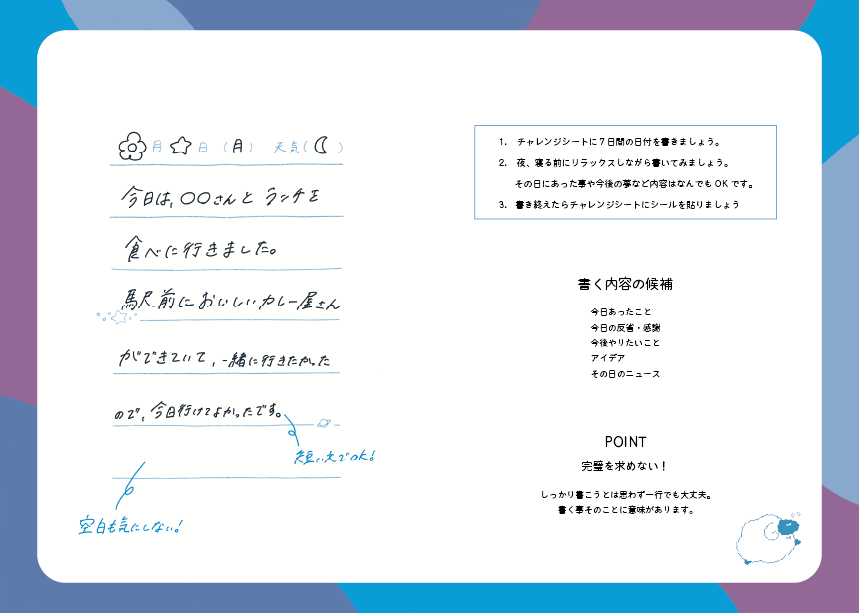 月 日 (月) 天気( )
今日は、〇〇さんと ランチを
食べに行きました。
駅前においしいカレー屋さん
ができていて、一緒に行きたかった
ので、今日行けてよかったです。
短い文でOK!
空白も気にしない!
1. チャレンジシートに7日間の日付を書きましょう。
2. 夜、寝る前にリラックスしながら書いてみましょう。
その日にあった事や今後の夢など内容はなんでもOKです。
3. 書き終えたらチャレンジシートにシールを貼りましょう
書く内容の候補
今日あったこと
今日の反省・感謝
今後やりたいこと
アイデア
その日のニュース
POINT
完璧を求めない！
しっかり書こうとは思わず一行でも大丈夫。
書く事そのことに意味があります。